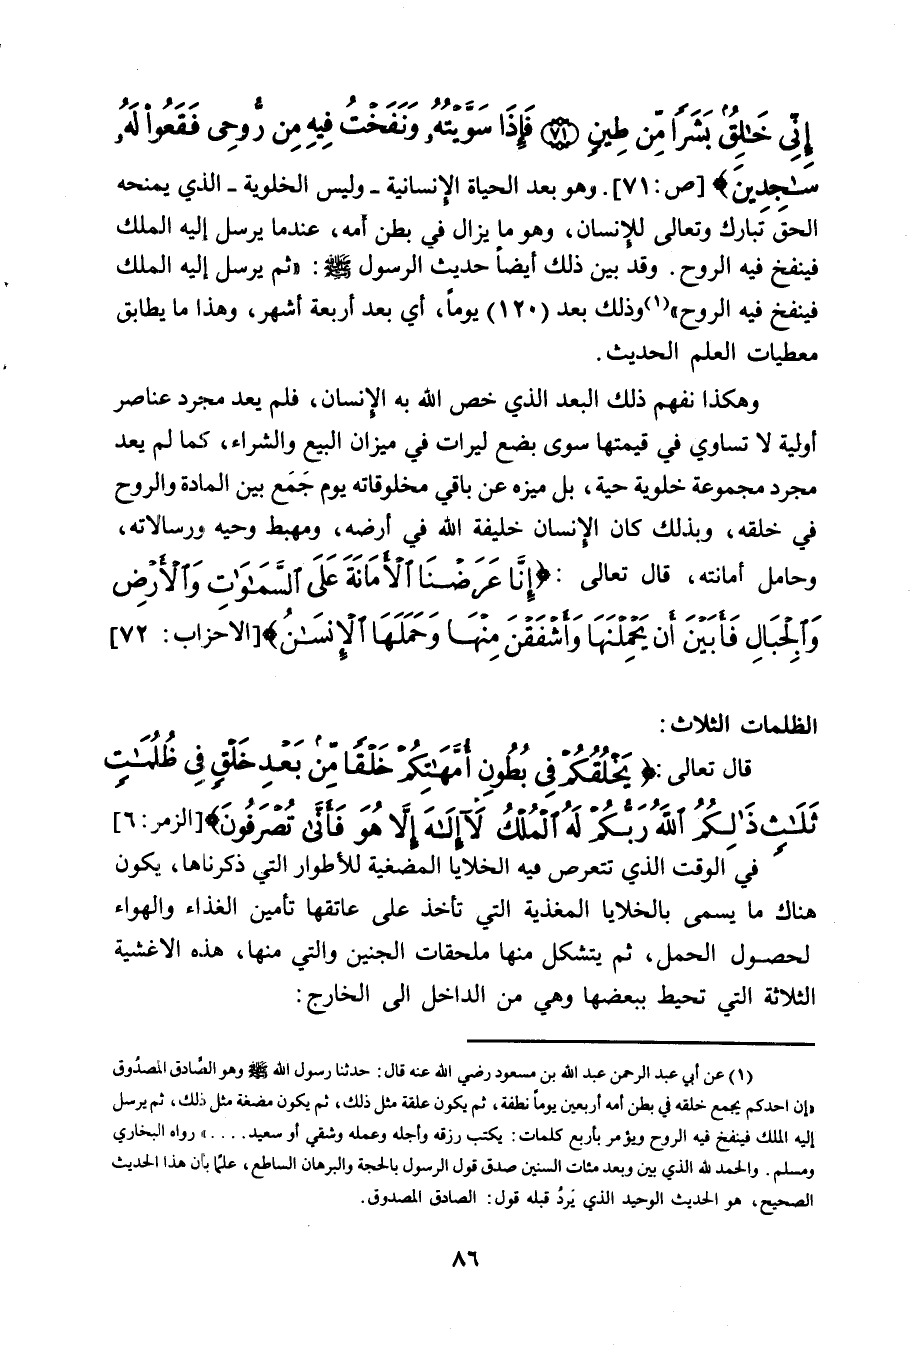 إِنِّي خَـٰلِقٌۢ بَشَرًا مِّن طِينٍ ﴿٧١﴾ فَإِذَا سَوَّيْتُهُۥ وَنَفَخْتُ فِيهِ مِن رُّوحِى فَقَعُوا۟ لَهُۥ
سَـٰجِدِينَ﴾ [ص: ٧١]. وهو بعد الحياة الإنسانية - وليس الخلوية - الذي يمنحه
الحق تبارك وتعالى للإنسان، وهو ما يزال في بطن أمه، عندما يرسل إليه الملك
فينفخ فيه الروح. وقد بين ذلك أيضاً حديث الرسول ﷺ: «ثم يرسل إليه الملك
فينفخ فيه الروح»(١) وذلك بعد (١٢٠) يوماً، أي بعد أربعة أشهر، وهذا ما يطابق
معطيات العلم الحديث.
وهكذا نفهم ذلك البعد الذي خص الله به الإنسان، فلم يعد مجرد عناصر
أولية لا تساوي في قيمتها سوى بضع ليرات في ميزان البيع والشراء، كما لم يعد
مجرد مجموعة خلوية حية، بل ميزه عن باقي مخلوقاته يوم جَمَع بين المادة والروح
في خلقه، وبذلك كان الإنسان خليفة الله في أرضه، ومهبط وحيه ورسالاته،
وحامل أمانته، قال تعالى :﴿إِنَّا عَرَضْنَا ٱلْأَمَانَةَ عَلَى ٱلسَّمَـٰوَٰتِ وَٱلْأَرْضِ
وَٱلْجِبَالِ فَأَبَيْنَ أَن يَحْمِلْنَهَا وَأَشْفَقْنَ مِنْهَا وَحَمَلَهَا ٱلْإِنسَـٰنُ﴾[الاحزاب: ٧٢]
الظلمات الثلاث:
قال تعالى :﴿يَخْلُقُكُمْ فِي بُطُونِ أُمَّهَـٰتِكُمْ خَلْقًا مِّنۢ بَعْدِ خَلْقٍ فِي ظُلُمَـٰتٍ
ثَلَـٰثٍ ذَٰلِكُمُ ٱللَّهُ رَبُّكُمْ لَهُ ٱلْمُلْكُ لَآ إِلَـٰهَ إِلَّا هُوَ فَأَنَّىٰ تُصْرَفُونَ﴾[الزمر: ٦]
في الوقت الذي تتعرض فيه الخلايا المضغية للأطوار التي ذكرناها، يكون
هناك ما يسمى بالخلايا المغذية التي تأخذ على عاتقها تأمين الغذاء والهواء
لحصول الحمل، ثم يتشكل منها ملحقات الجنين والتي منها، هذه الاغشية
الثلاثة التي تحيط ببعضها وهي من الداخل الى الخارج:
(١) عن أبي عبد الرحمن عبد الله بن مسعود رضي الله عنه قال: حدثنا رسول الله ﷺ وهو الصَّادق المصدُوق
«إن احدكم يجمع خلقه في بطن أمه أربعين يوماً نطفة، ثم يكون علقة مثل ذلك، ثم يكون مضغة مثل ذلك، ثم يرسل
إليه الملك فينفخ فيه الروح ويؤمر بأربع كلمات: يكتب رزقه وأجله وعمله وشقي أو سعيد....» رواه البخاري
ومسلم. والحمد لله الذي بين وبعد مئات السنين صدق قول الرسول بالحجة والبرهان الساطع، علمًا بأن هذا الحديث
الصحيح، هو الحديث الوحيد الذي يَردُ قبله قول: الصادق المصدوق.
٨٦